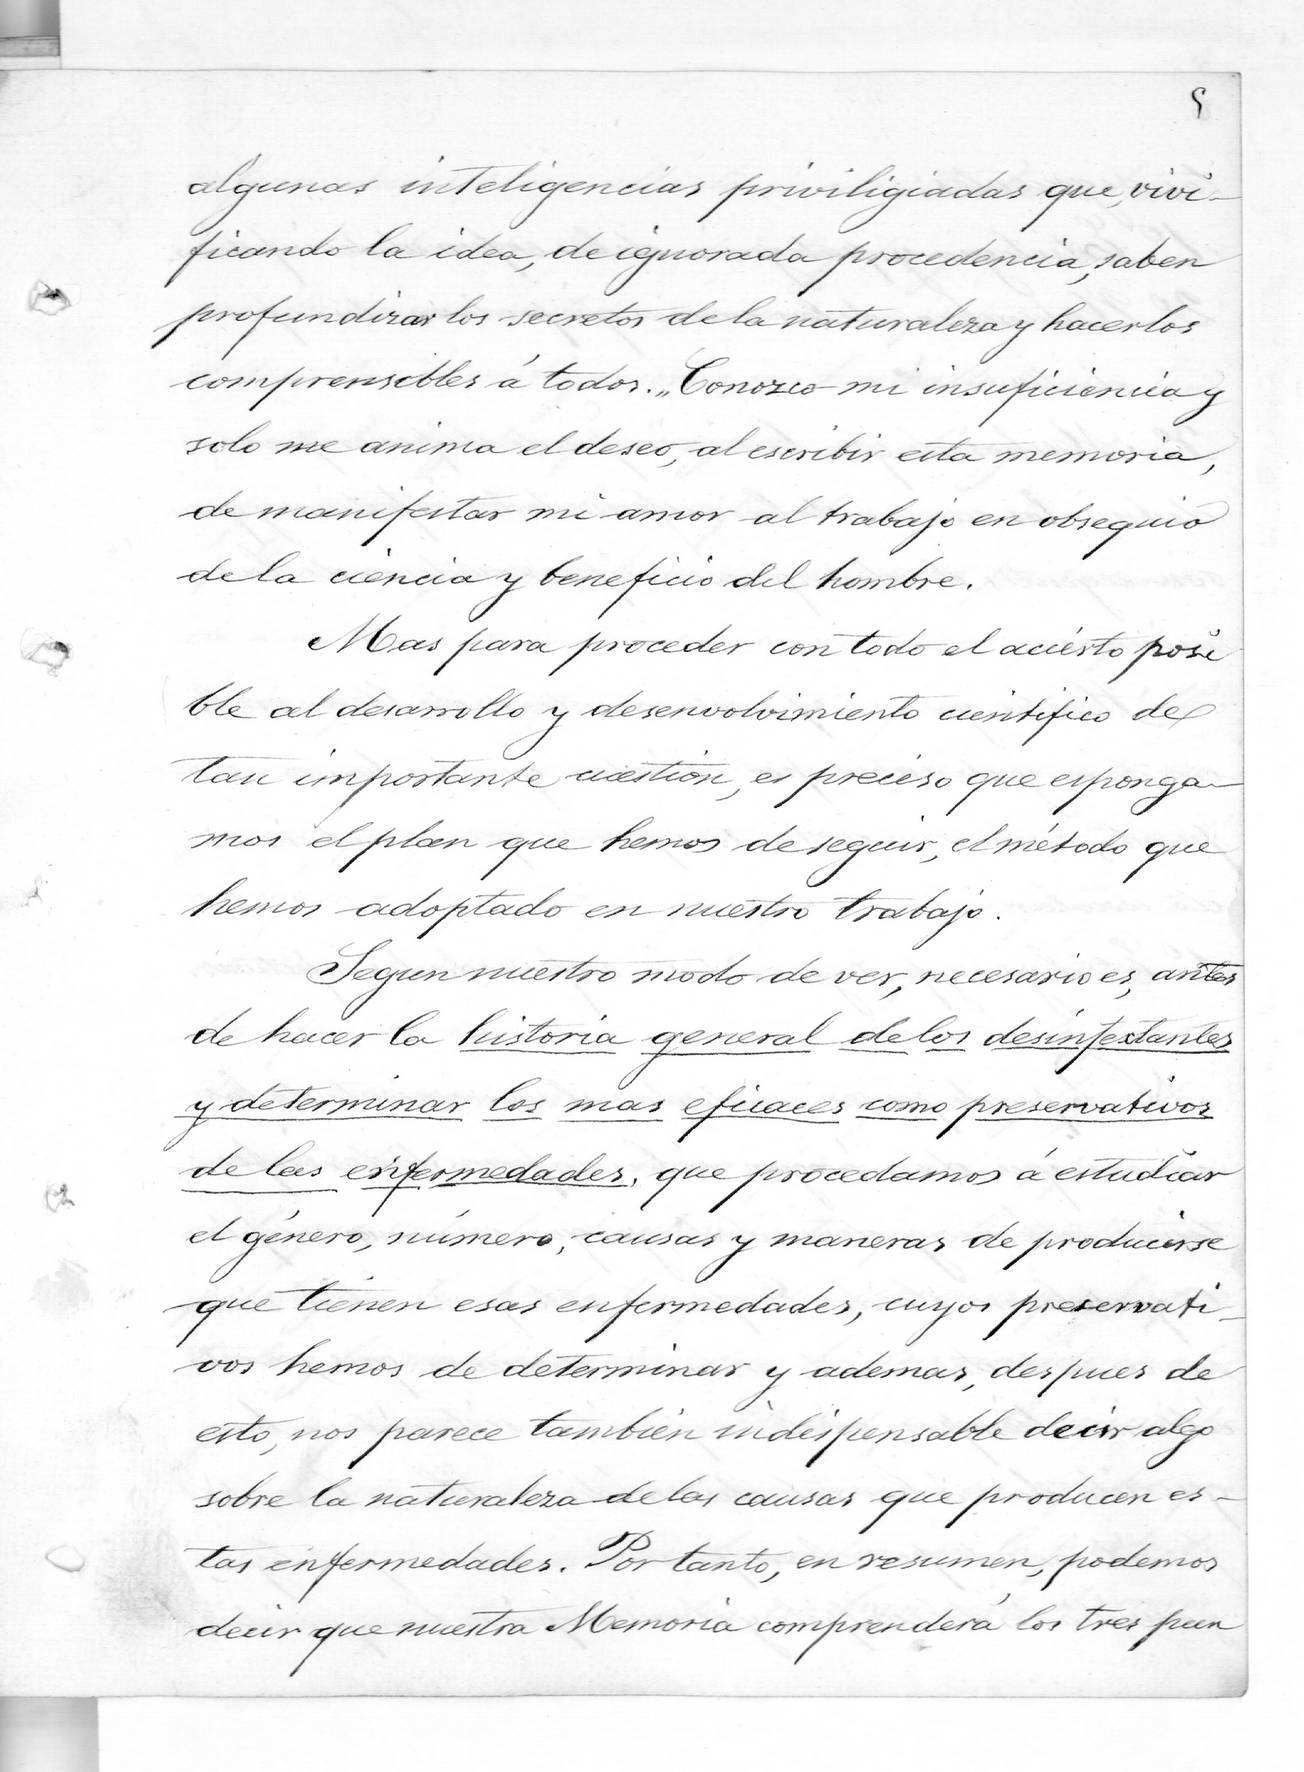 5
algunas inteligencias priviligiadas que, vivi-
ficando la idea, de ignorada procedencia, saben
profundizar los secretos de la naturaleza y hacerlos
comprensibles á todos.„ Conozco mi insuficiencia y
solo me anima el deseo, al escribir esta memoria,
de manifestar mi amor al trabajo en obsequio
de la ciencia y beneficio del hombre.
Mas para proceder con todo el acierto posi
ble al desarrollo y desenvolvimiento cientifico de
tan importante cuestion, es preciso que esponga-
mos el plan que hemos de seguir, el método que
hemos adoptado en nuestro trabajo.
Segun nuestro modo de ver, necesario es, antes
de hacer la historia general de los desinfextantes
y determinar los mas eficaces como preservativos
de las enfermedades, que procedamos á estudiar
el género, número, causas y maneras de producirse
que tienen esas enfermedades, cuyos preservati-
vos hemos de determinar y ademas, despues de
esto, nos parece tambien indispensable decir algo
sobre la naturaleza de las causas que producen es-
tas enfermedades. Por tanto, en resumen, podemos
decir que nuestra Memoria comprenderá los tres pun